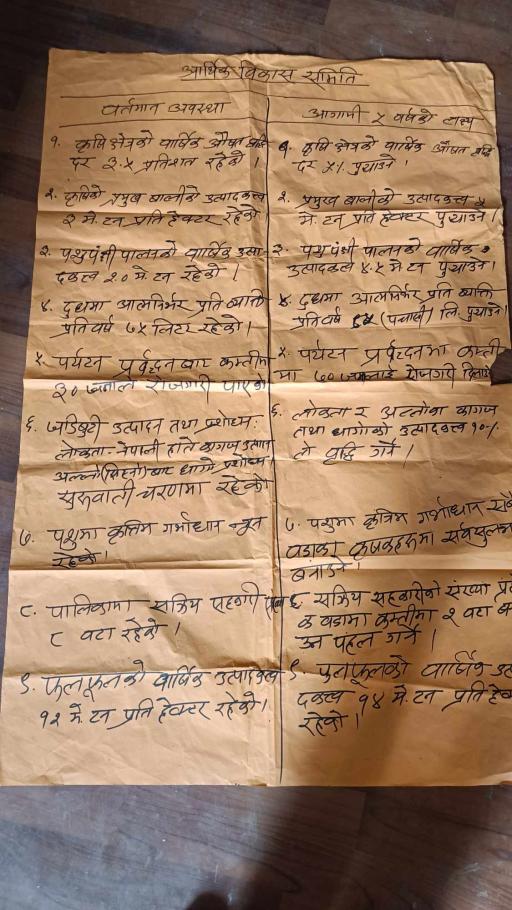 आर्थिक विकास समिति
वर्तमान अवस्था
१. कृषि क्षेत्रको वार्षिक औषत वृद्धि
दर ३.५ प्रतिशत रहेको ।
२. कृषिको प्रमुख बालीको उत्पादकत्व
३ मे. टन प्रति हेक्टर रहेको ।
३. पशुपंक्षी पालनको वार्षिक उत्पा
दकत्व २० मे. टन रहेको ।
४. दुधमा आत्मनिर्भर प्रति व्यक्ति
प्रतिवर्ष ७५ लिटर रहेको ।
५. पर्यटन प्रर्वद्दनबाट कम्तीमा
३० जनाले रोजगारी पाएको
६. जडिबुटी उत्पादन तथा प्रशोधन:
लोकता - नेपाली हाते कागज उत्पादन
अल्लो (सिस्नो) बाट धागो प्रशोधन
सुरुवाती चरणमा रहेको
७. पशुमा कृतिम गर्भाधान न्यून
रहेको ।
८. पालिकामा सक्रिय सहकारी
८ वटा रहेको ।
९. फलफूलको वार्षिक उत्पादकत्व
१२ मे. टन प्रति हेक्टर रहेको ।
आगामी ५ वर्षको लक्ष्य
१. कृषि क्षेत्रको वार्षिक औषत वृद्धि
दर ५% पुर्‍याउने ।
२. प्रमुख बालीको उत्पादकत्व
मे. टन प्रति हेक्टर पुर्‍याउने ।
३. पशुपंक्षी पालनको वार्षिक
उत्पादकत्व ४.५ मे टन पुर्‍याउने ।
४. दुधमा आत्मनिर्भर प्रति व्यक्ति
प्रतिवर्ष (पचासी) लि. पुर्‍याउने
५. पर्यटन प्रर्वद्दनमा कम्ती
मा ७० जनालाई रोजगारी
६. लोकता र अल्लोबा कागज
तथा धागोको उत्पादकत्व १०%
ले वृद्धि गर्ने ।
७. पशुमा कृत्रिम गर्भाधान
वडाका कृषकहरुमा सर्वसुलभ
बनाउने ।
८ सक्रिय सहकारीको संख्या प्रत्ये
क वडामा कम्तीमा २ वटा
उन पहल गर्ने ।
९ फलफूलको वार्षिक उत्पा
दकत्व १४ मे. टन प्रति हेक्ट
रहेको ।